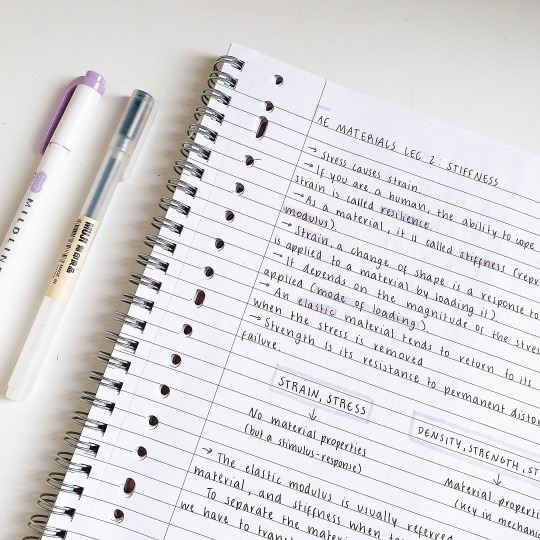 MILDLINE
MUJI 無印良品
1E MATERIALS LEC 2: STIFFNESS
→ Stress causes strain.
→ If you are a human, the ability to cope
strain is called resilience
→ As a material, it is called stiffness (repr
modulus).
→ Strain, a change of shape is a response to
is applied to a material by loading it)
→ It depends on the magnitude of the stres
applied (mode of loading)
→ An elastic material tends to return to its
when the stress is removed
→ Strength is its resistance to permanent distor
failure
STRAIN, STRESS
↓
No material properties
(but a stimulus-response)
DENSITY, STRENGTH, ST
↓
Material properti
(key in mechanic
→ The elastic modulus is usually referred
material, and stiffness when
To separate the mater
we have to trans